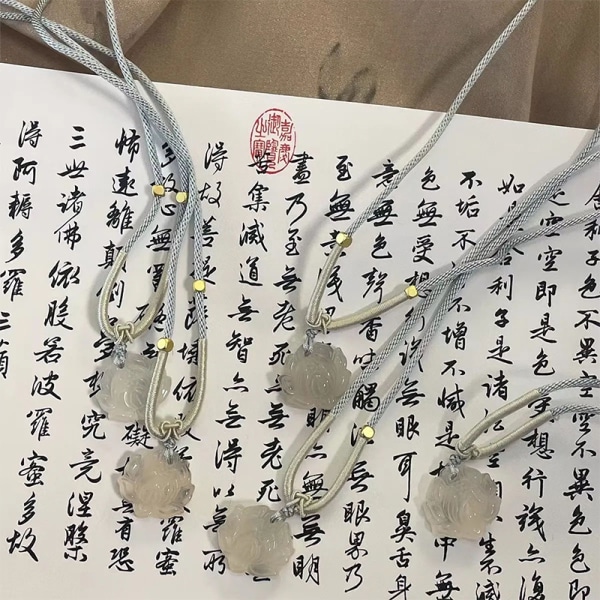 利子色不異空空不異色色即
空空即是色想行識亦復
如是舍利子是諸生不滅
不垢不不增不減是中無
色無受想行識無眼耳鼻舌身
意無色聲香味觸無眼界乃
至無無無明
盡乃至無老死無老死
苦集滅道無智亦無得以無所
得故菩提薩埵依羅蜜
多故心無罣礙有恐
怖遠離顛倒究竟涅槃
三世諸佛依般若波羅蜜多故
得阿耨多羅三藐
嘉慶御覽之寶